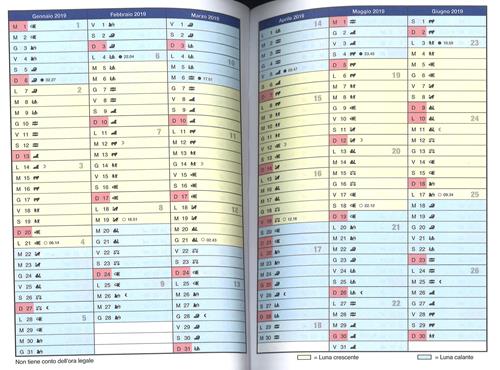 Gennaio 2019
M 1 1
M 2
G 3
V 4
S 5
D 6 02.27
L 7 2
M 8
M 9
G 10
V 11
S 12
D 13
L 14 3
M 15
M 16
G 17
V 18
S 19
D 20
L 21 06.14 4
M 22
M 23
G 24
V 25
S 26
D 27
L 28 5
M 29
M 30
G 31
Febbraio 2019
V 1
S 2
D 3
L 4 22.04 6
M 5
M 6
G 7
V 8
S 9
D 10
L 11 7
M 12
M 13
G 14
V 15
S 16
D 17
L 18 8
M 19 16.51
M 20
G 21
V 22
S 23
D 24
L 25 9
M 26
M 27
G 28
Marzo 2019
V 1
S 2
D 3
L 4 10
M 5
M 6 17.01
G 7
V 8
S 9
D 10
L 11 11
M 12
M 13
G 14
V 15
S 16
D 17
L 18 12
M 19
M 20
G 21 02.43
V 22
S 23
D 24
L 25 13
M 26
M 27
G 28
V 29
S 30
D 31
Non tiene conto dell'ora legale
Aprile 2019
L 1 14
M 2
M 3
G 4
V 5
S 6
D 7
L 8 15
M 9
M 10
G 11
V 12
S 13
D 14
L 15 16
M 16
M 17
G 18
V 19 12.16
S 20
D 21
L 22 17
M 23
M 24
G 25
V 26
S 27
D 28
L 29 18
M 30
Maggio 2019
M 1
G 2
V 3
S 4 23.45
D 5
L 6 19
M 7
M 8
G 9
V 10
S 11
D 12
L 13 20
M 14
M 15
G 16
V 17
S 18
D 19
L 20 21
M 21
M 22
G 23
V 24
S 25
D 26
L 27 22
M 28
M 29
G 30
V 31
Giugno 2019
S 1
D 2
L 3 23
M 4
M 5
G 6
V 7
S 8
D 9
L 10 24
M 11
M 12
G 13
V 14
S 15
D 16
L 17 25
M 18
M 19
G 20
V 21
S 22
D 23
L 24 26
M 25
M 26
G 27
V 28
S 29
D 30
= Luna crescente = Luna calante